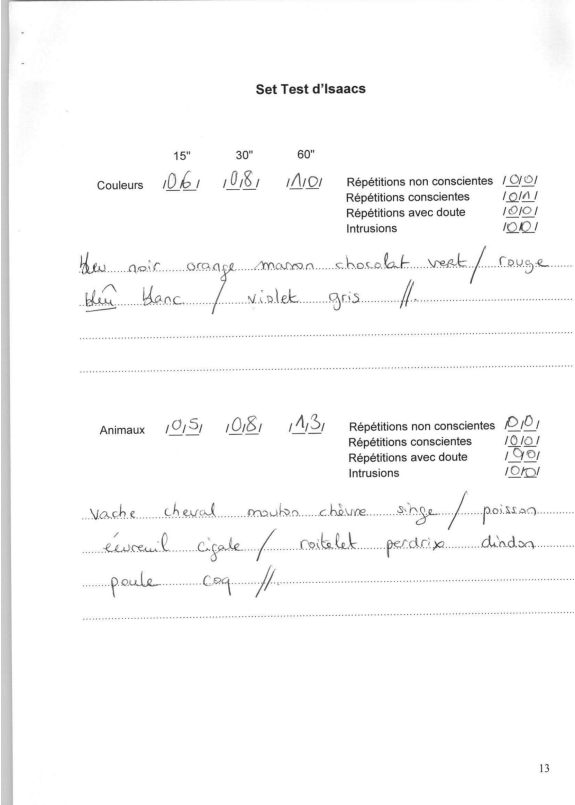 Set Test d'Isaacs
15" 30" 60"
Couleurs 06 08 10 Répétitions non conscientes 00
Répétitions conscientes 01
Répétitions avec doute 00
Intrusions 00
bleu noir orange marron chocolat vert / rouge
bleu blanc / violet gris //
Animaux 05 08 13 Répétitions non conscientes 00
Répétitions conscientes 00
Répétitions avec doute 00
Intrusions 00
vache cheval mouton chèvre singe / poisson
écureuil cigale / roitelet perdrix dindon
poule coq //
13